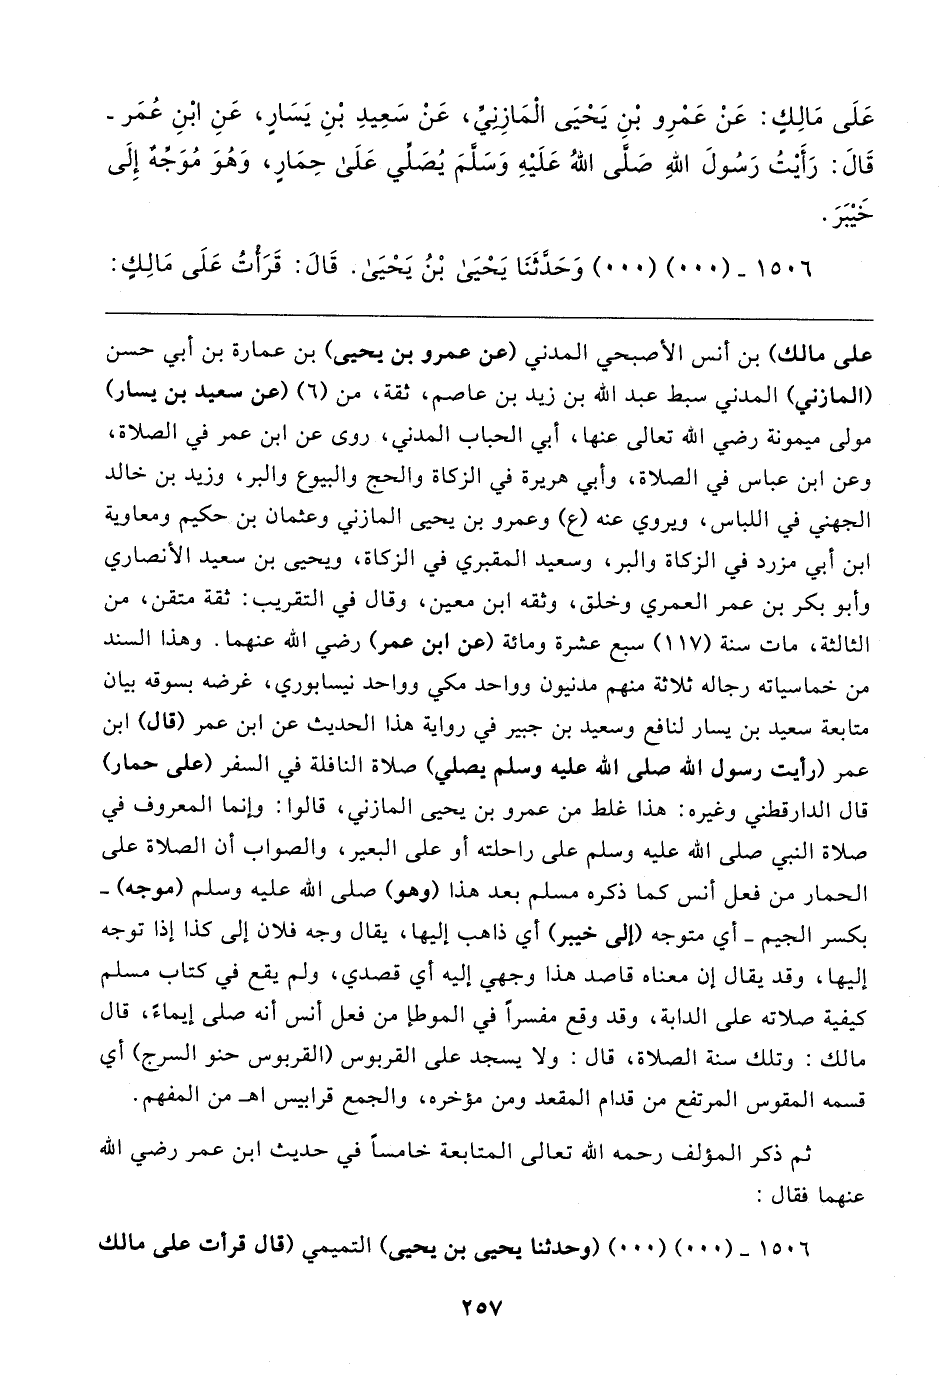 عَلَى مَالِكٍ: عَنْ عَمْرِو بْنِ يَحْيَى الْمَازِنِيِّ، عَنْ سَعِيدِ بْنِ يَسَارٍ، عَنِ ابْنِ عُمَرَ ـ
قَالَ: رَأَيْتُ رَسُولَ اللهِ صَلَّى اللهُ عَلَيْهِ وَسَلَّمَ يُصَلِّي عَلَىٰ حِمَارٍ، وَهُوَ مُوَجِّهٌ إِلَى
خَيْبَرَ.
١٥٠٦ ـ (٠٠٠) (٠٠٠) وَحَدَّثَنَا يَحْيَىٰ بْنُ يَحْيَىٰ. قَالَ: قَرَأْتُ عَلَى مَالِكٍ:
على مالك) بن أنس الأصبحي المدني (عن عمرو بن يحيى) بن عمارة بن أبي حسن
(المازني) المدني سبط عبد الله بن زيد بن عاصم، ثقة، من (٦) (عن سعيد بن يسار)
مولى ميمونة رضي الله تعالى عنها، أبي الحباب المدني، روى عن ابن عمر في الصلاة،
وعن ابن عباس في الصلاة، وأبي هريرة في الزكاة والحج والبيوع والبر، وزيد بن خالد
الجهني في اللباس، ويروي عنه (ع) وعمرو بن يحيى المازني وعثمان بن حكيم ومعاوية
ابن أبي مزرد في الزكاة والبر، وسعيد المقبري في الزكاة، ويحيى بن سعيد الأنصاري
وأبو بكر بن عمر العمري وخلق، وثقه ابن معين، وقال في التقريب: ثقة متقن، من
الثالثة، مات سنة (١١٧) سبع عشرة ومائة (عن ابن عمر) رضي الله عنهما. وهذا السند
من خماسياته رجاله ثلاثة منهم مدنيون وواحد مكي وواحد نيسابوري، غرضه بسوقه بيان
متابعة سعيد بن يسار لنافع وسعيد بن جبير في رواية هذا الحديث عن ابن عمر (قال) ابن
عمر (رأيت رسول الله صلى الله عليه وسلم يصلي) صلاة النافلة في السفر (على حمار)
قال الدارقطني وغيره: هذا غلط من عمرو بن يحيى المازني، قالوا: وإنما المعروف في
صلاة النبي صلى الله عليه وسلم على راحلته أو على البعير، والصواب أن الصلاة على
الحمار من فعل أنس كما ذكره مسلم بعد هذا (وهو) صلى الله عليه وسلم (موجه) ـ
بكسر الجيم ـ أي متوجه (إلى خيبر) أي ذاهب إليها، يقال وجه فلان إلى كذا إذا توجه
إليها، وقد يقال إن معناه قاصد هذا وجهي إليه أي قصدي، ولم يقع في كتاب مسلم
كيفية صلاته على الدابة، وقد وقع مفسراً في الموطإ من فعل أنس أنه صلى إيماءً، قال
مالك : وتلك سنة الصلاة، قال : ولا يسجد على القربوس (القربوس حنو السرج) أي
قسمه المقوس المرتفع من قدام المقعد ومن مؤخره، والجمع قرابيس اهـ من المفهم.
ثم ذكر المؤلف رحمه الله تعالى المتابعة خامساً في حديث ابن عمر رضي الله
عنهما فقال :
١٥٠٦ ـ (٠٠٠) (٠٠٠) (وحدثنا يحيى بن يحيى) التميمي (قال قرأت على مالك
٢٥٧